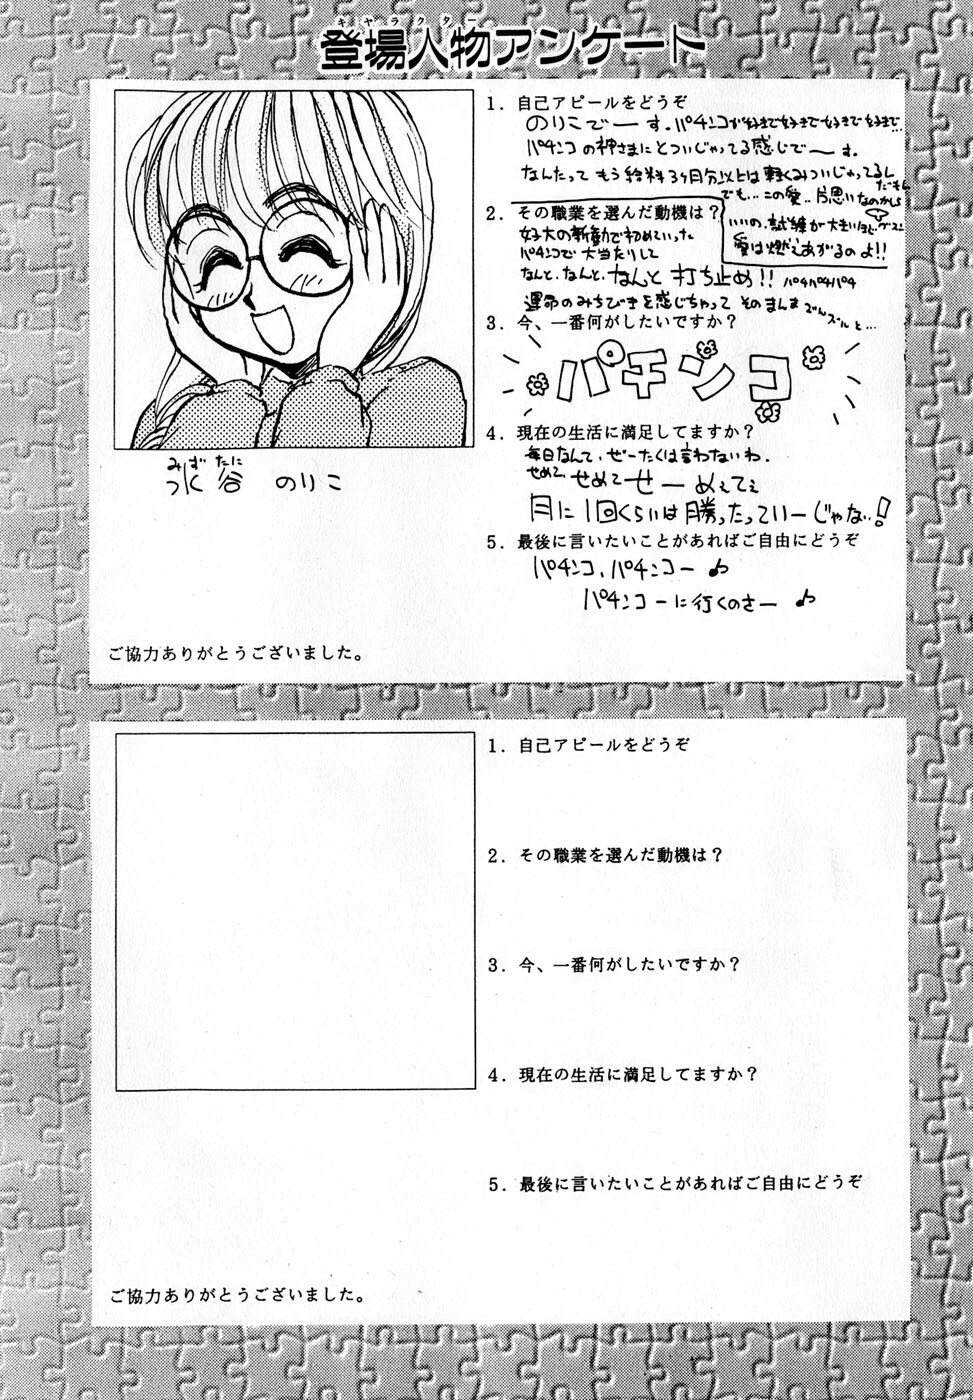 キャラクター
登場人物アンケート
1. 自己アピールをどうぞ
のりこでーす。パチンコが好きで好きで好きで好きで…
パチンコの神さまにとついじゃってる感じでーす。
なんたって もう給料3ヶ月分以上は軽くみついじゃってるし
でも…この愛‥片思いなのかしら
いいの、試練が大きいほど
愛は燃えあがるのよ!!
2. その職業を選んだ動機は？
初めていった
パチンコで大当たりして
なんと、なんと、なんと 打ち止め!! パチパチパチパチ
運命のみちびきを感じちゃって そのまんま ずんズルと…
3. 今、一番何がしたいですか？
パチンコ
4. 現在の生活に満足してますか？
毎日なんて、ぜーたくは言わないわ。
せめて、せめて せーめぇてぇ
月に1回くらいは勝ったっていーじゃない!
5. 最後に言いたいことがあればご自由にどうぞ
パチンコ、パチンコー♪
パチンコーに行くのさー ♪
みずたに
水谷 のりこ
ご協力ありがとうございました。
1. 自己アピールをどうぞ
2. その職業を選んだ動機は？
3. 今、一番何がしたいですか？
4. 現在の生活に満足してますか？
5. 最後に言いたいことがあればご自由にどうぞ
ご協力ありがとうございました。